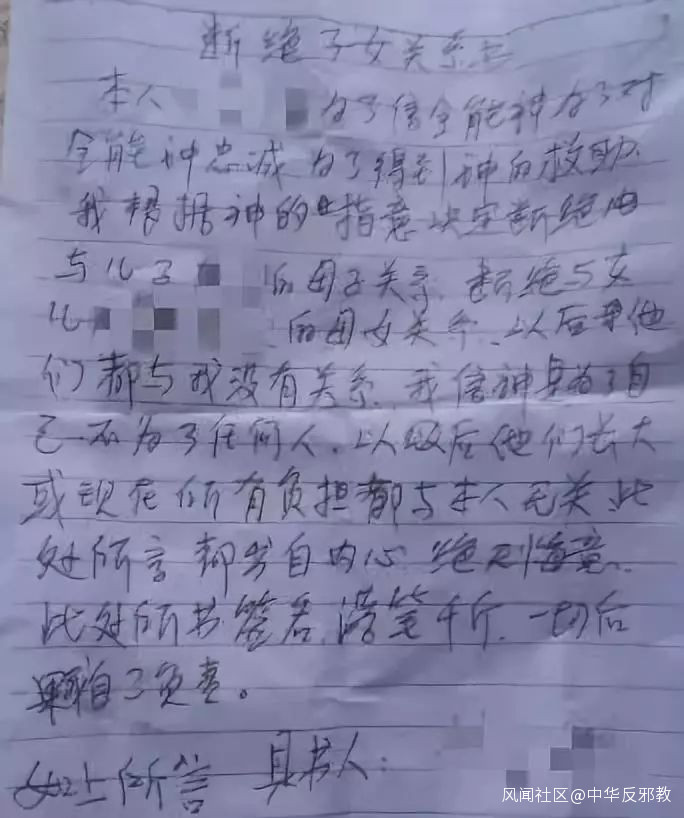 断绝子女关系书
本人 为了信全能神为了对
全能神忠诚 为了得到神的救助、
我根据神的旨意决定断绝
与儿子 的母子关系、断绝与女
儿 的母女关系、以后他
们都与我没有关系、我信神是为了自
己不为了任何人、以后他们长大
或现在所有负担都与本人无关、此
处所言都出自内心 绝无悔意、
此处所书签名、落笔千斤、一切后
果自己负责。
如上所言 具书人:
风闻社区@中华反邪教